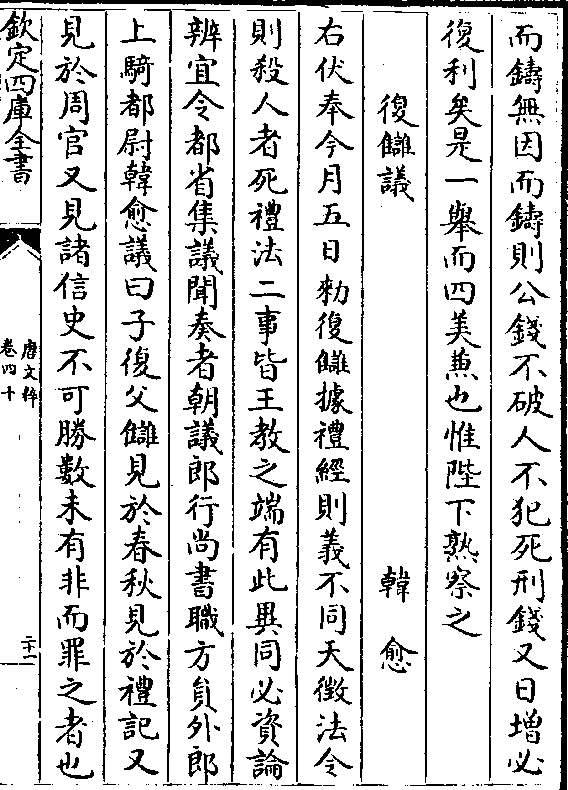 而鑄無因而鑄則公錢不破人不犯死刑錢又日增必
復利矣是一舉而四美兼也惟陛下熟察之
復讎議 韓愈
右伏奉今月五日勑復讎據禮經則義不同天徵法令
則殺人者死禮法二事皆王教之端有此異同必資論
辨宜令都省集議聞奏者朝議郎行尚書職方員外郎
上騎都尉韓愈議曰子復父讎見於春秋見於禮記又
見於周官又見諸信史不可勝數未有非而罪之者也
欽定四庫全書
唐文粹
卷四十
二十一